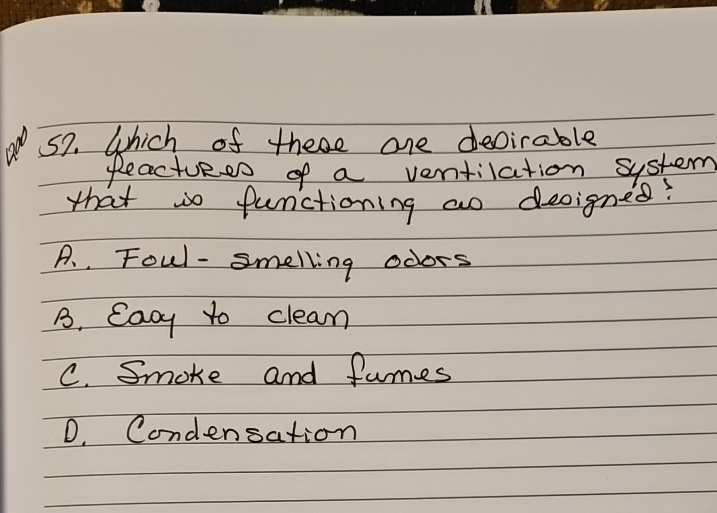 57. Which of these are desirable
feactures of a ventilation system
that is functioning as designed?
A. Foul-smelling odors
B. Easy to clean
C. Smoke and fumes
D. Condensation